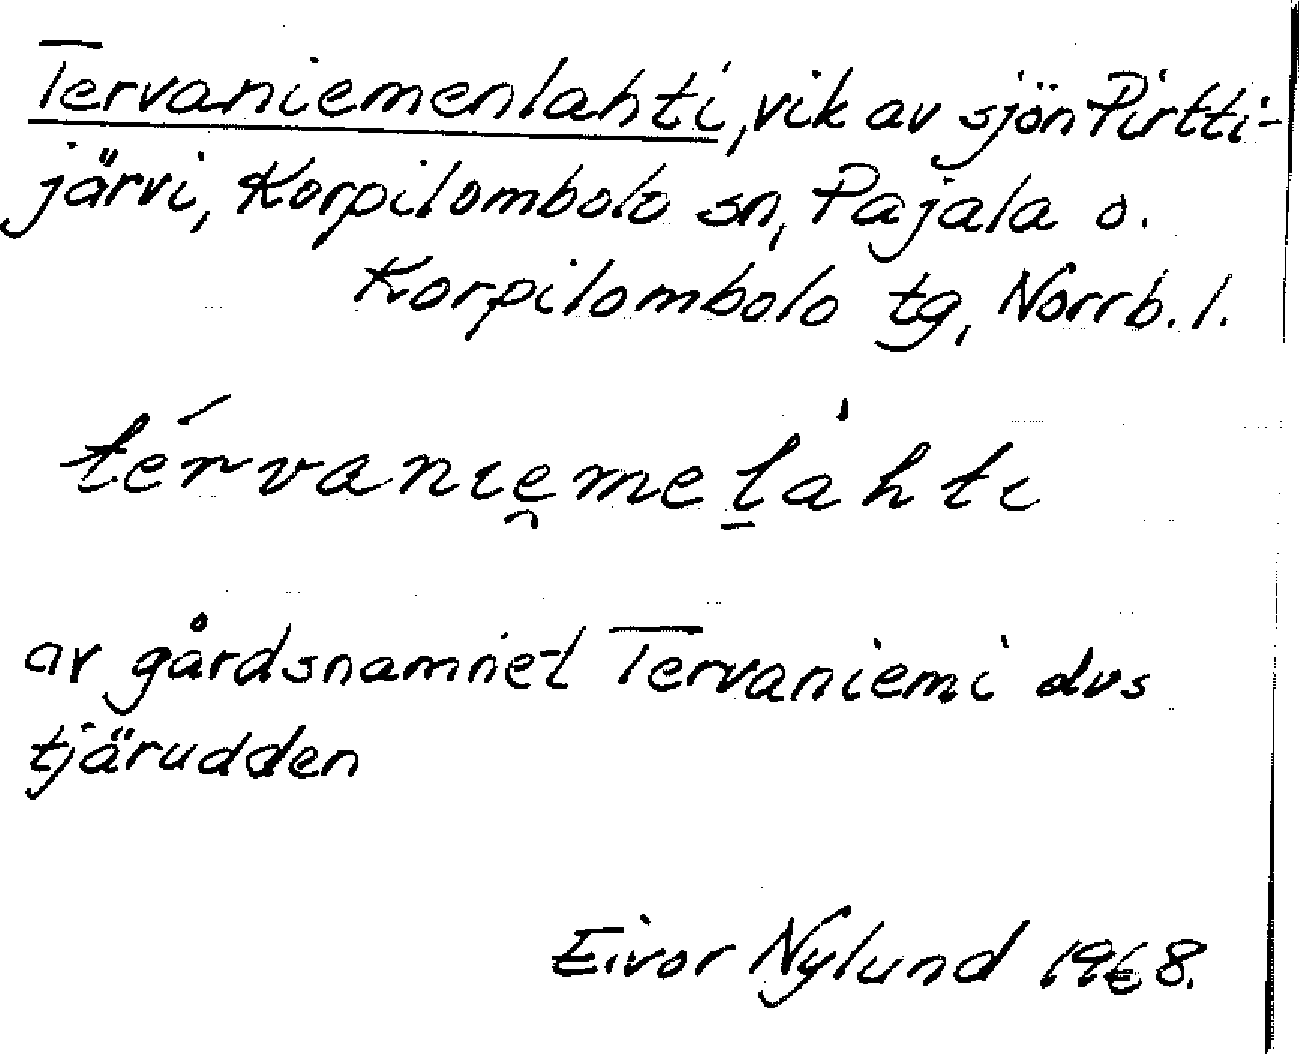 Tervaniemenlahti, vik av sjön Pirtti-
järvi, Korpilombolo sn, Pajala o.
Korpilombolo tg, Norrb. l.
térvanıe̯mel̠àhtı
av gårdsnamnet Tervaniemi dvs
tjärudden
Eivor Nylund 1968.